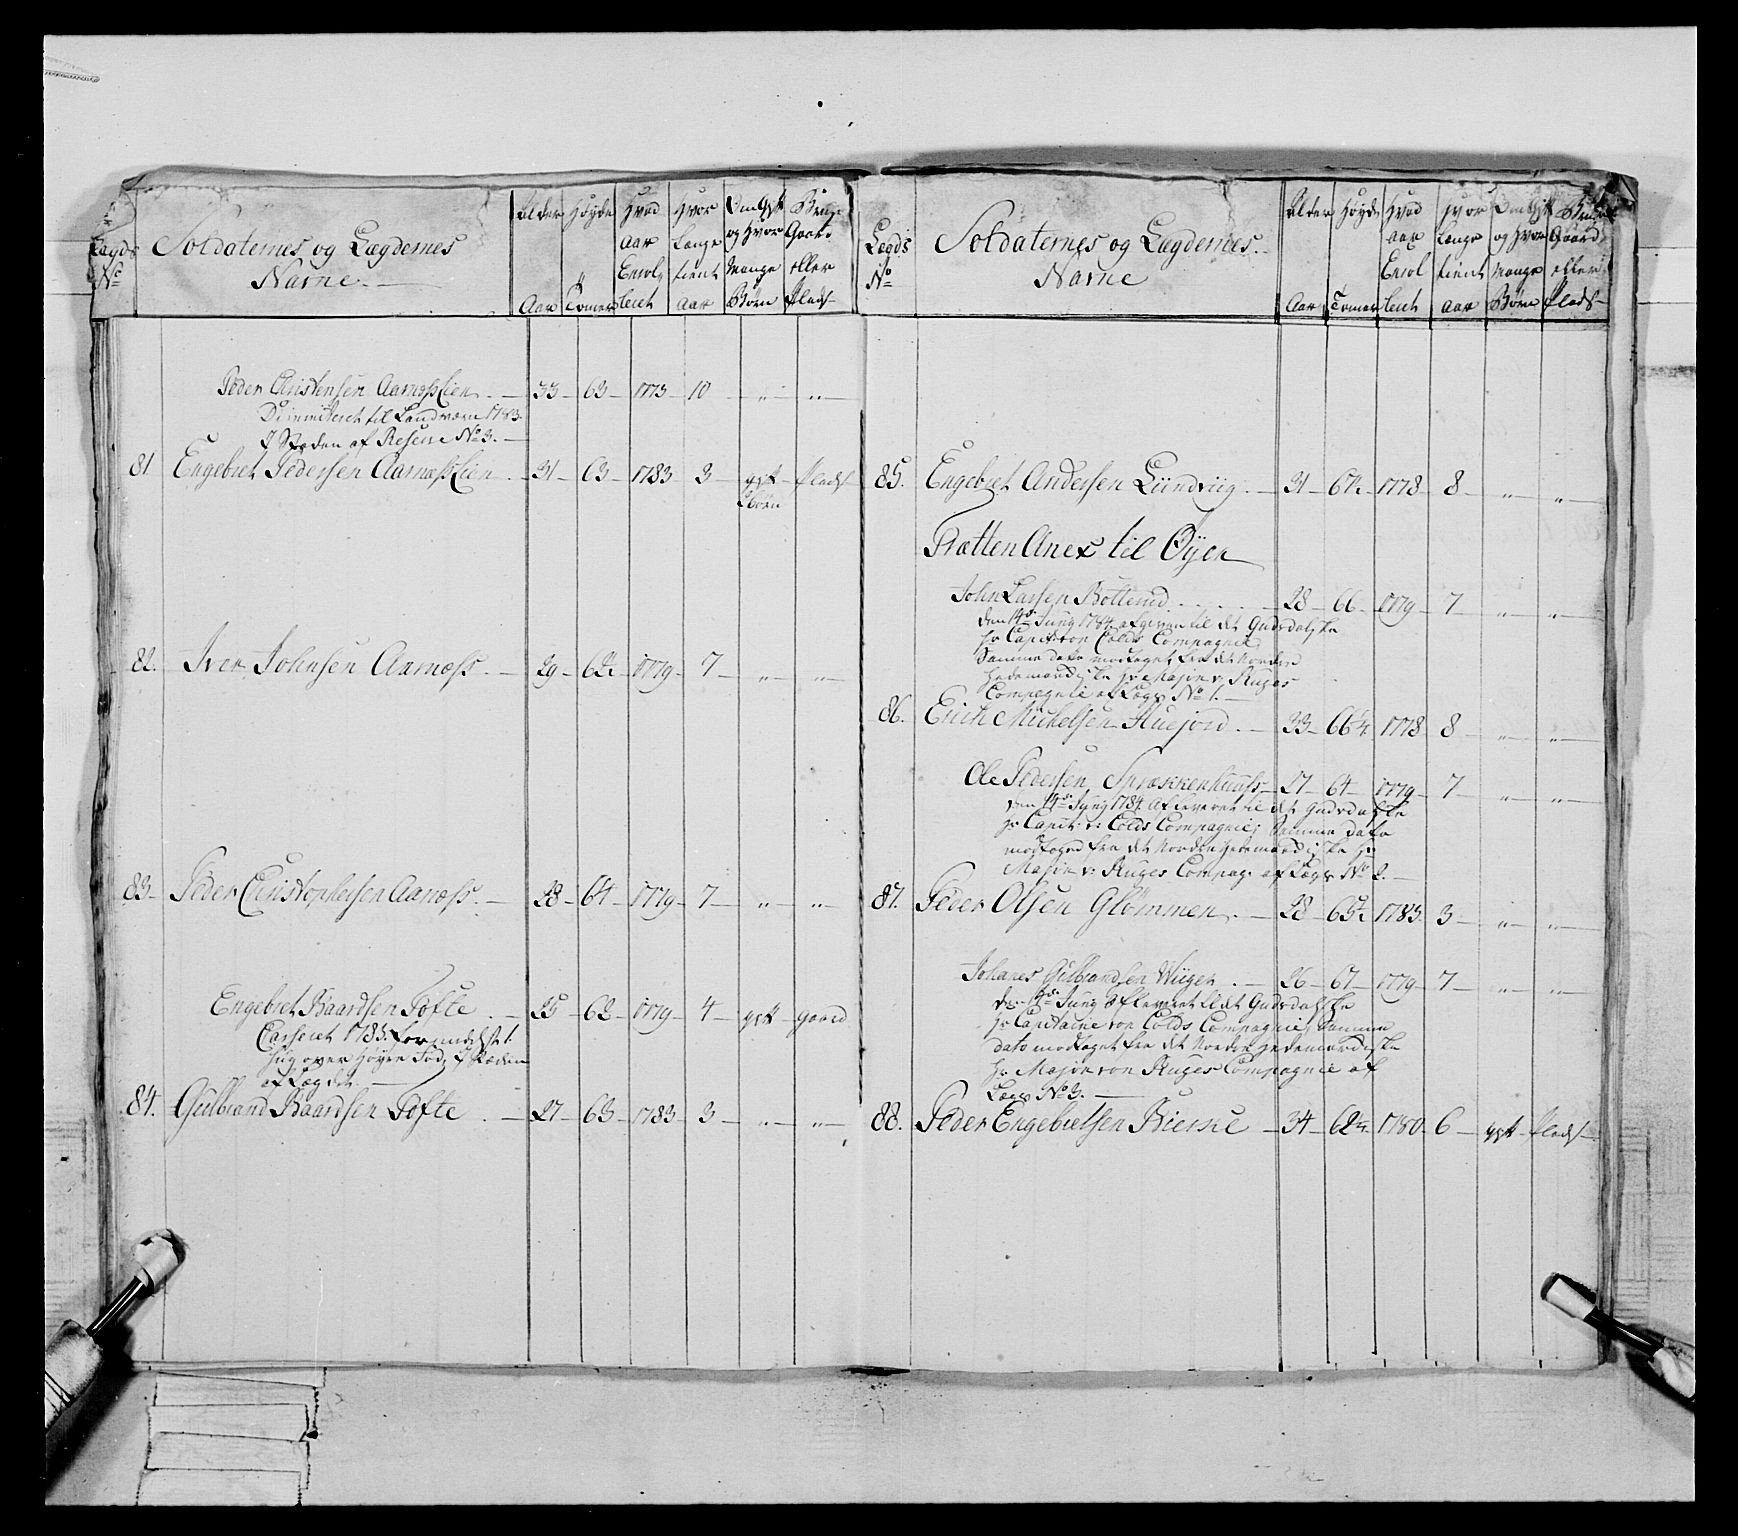 Lægds No
Soldaternes og Lægdernes Navne
Alder Aar
Høyde Tomer
Hvad Aar Enrolleret
Hvor Længe tient Aar
Om Gift og Hvor Mange Børn
Bruger Gaard eller Plads
Peder Christensen Aarnæss Eien 33 63 1773 10 " "
Dimiteret til Landværn 1783.
I Stæden af Reserve No 3.
81. Engebret Pedersen Aarnæss Eien 31 63 1783 3 gift 2 børn Plads
82. Iver Johnsen Aarnæss 29 62 1779 7 " "
83. Peder Christophersen Aarnæss 28 64 1779 7 " "
Engebret Baardsen Tofte 25 62 1779 4 gift gaard
Casseret 1783 formedelst 1.
hug over høyre Fod, I Stæden
af Lægdet
84. Gulbrand Baardsen Tofte 27 63 1783 3 " "
Lægds No
Soldaternes og Lægdernes Navne
Alder Aar
Høyde Tomer
Hvad Aar Enrolleret
Hvor Længe tient Aar
Om Gift og Hvor Mange Børn
Bruger Gaard eller Plads
85. Engebret Andersen Lundviig 31 67½ 1778 8 " "
Trætten Anex til Øyer
John Larsen Botterud 28 66 1779 7 " "
den 14de Juny 1784 afgiven til det Gudsdalske
Hr Capit: von Colds Compagnie
Samme dato modtaget fra det Nordre
Hedemarkiske Hr Major v: Kuges
Compagnie af Lægd No 1.
86. Erich Michelsen Huejord 33 66¼ 1778 8 " "
Ole Pedersen Sprækkenhuuss 27 64 1779 7 " "
den 14de Juny 1784 Afleveret til det Gudsdalske
Hr Capit: v: Colds Compagnie, Samme dato
modtaged fra det Nordre Hedemarkiske Hr
Major v: Kuges Compag: af Lægd No 2.
87. Peder Olsen Glømmen 28 65½ 1783 3 " "
Johanes Gulbrandsen Wiigen 26 67 1779 7 " "
den 14de Juny Afleveret til det Gudsdalske
Hr Capitaine von Colds Compagnie, Samme
dato modtaget fra det Nordre Hedemarkiske
Hr Major von Kuges Compagnie af
Lægd No 3.
88. Peder Engebretsen Bierche 34 62¼ 1780 6 gift Plads